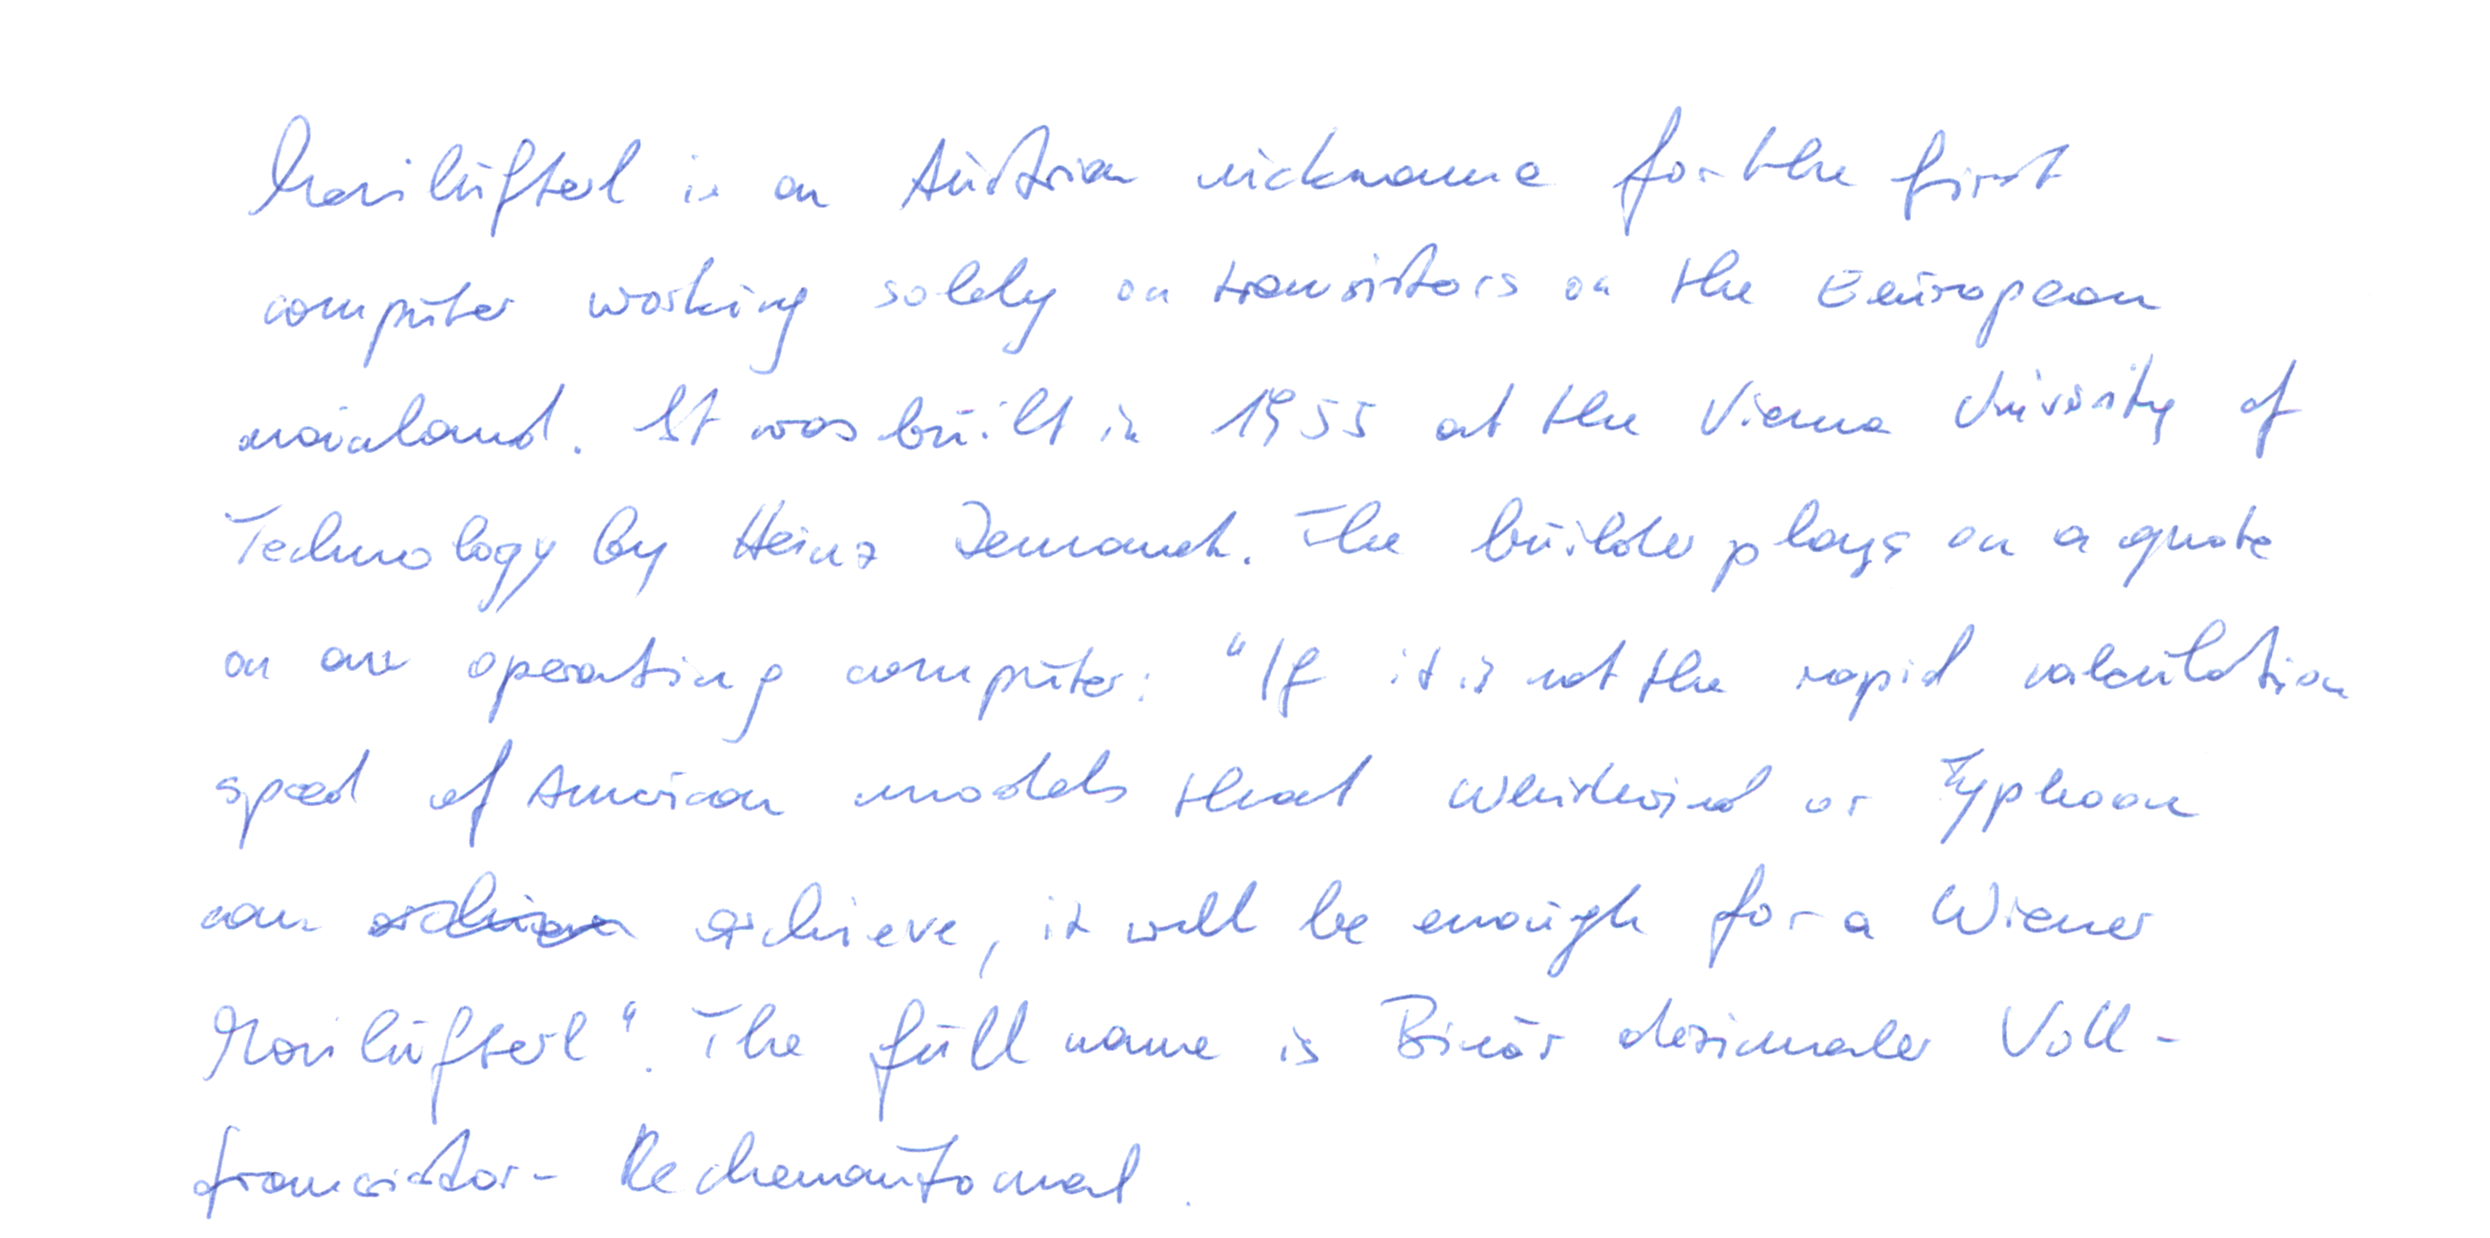 Mailüfterl is an Austrian nickname for the first
computer working solely on transistors on the European
mainland. It was built in 1955 at the Vienna Univsity of
Technology by Heinz Zemanek. The builder plays on a quote
on an operating computer: "If it is not the rapid calculation
speed of American models that Whirlwind or Typhoon
can achieve, it will be enough for a Wiener
Mailüfterl". The full name is Binär dezimaler Voll-
transistor-Rechenautomat.